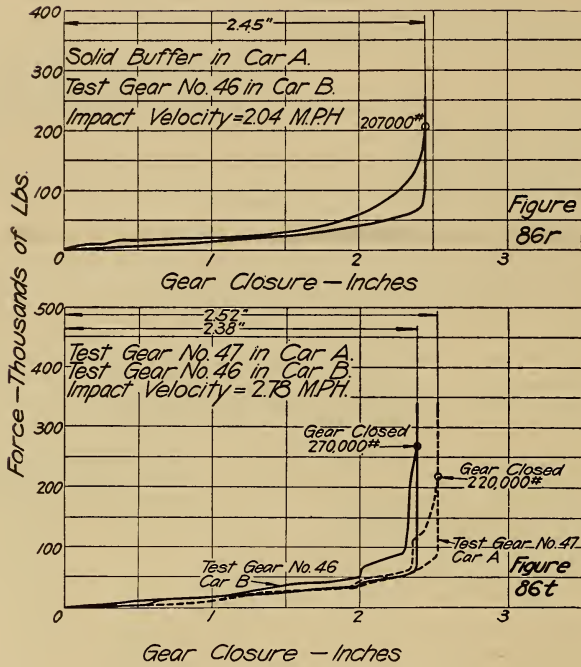 400
2.45"
Solid Buffer in Car A.
300
Test Gear No. 46 in Car B.
Impact Velocity=2.04 M.P.H
207000#
200
100
Figure
86r
0
0 1 2 3
Gear Closure — Inches
Force — Thousands of Lbs.
500
2.52"
2.38"
Test Gear No. 47 in Car A.
400
Test Gear No. 46 in Car B.
Impact Velocity = 2.78 M.P.H.
300
Gear Closed
270,000#
Gear Closed
220,000#
200
100
Test Gear No. 46
Car B
Test Gear No. 47
Car A
Figure
86t
0
0 1 2 3
Gear Closure — Inches